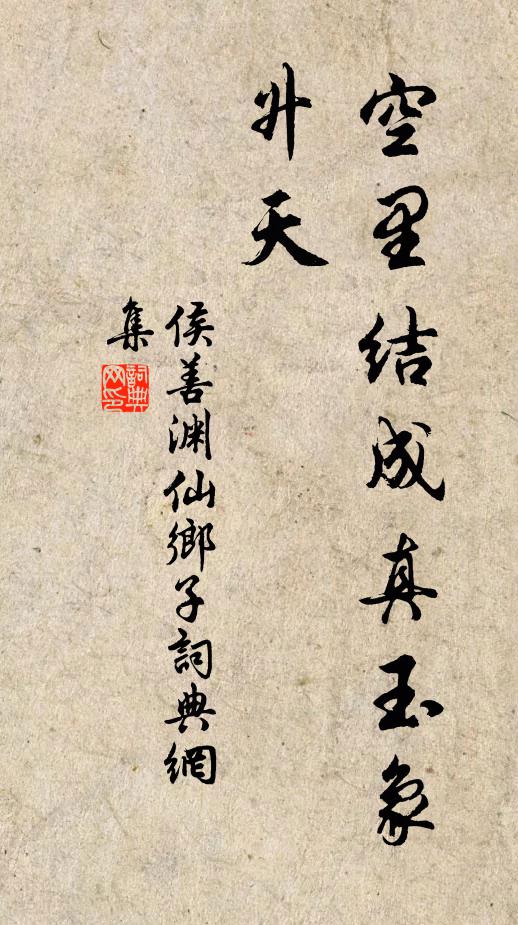 空里结成真玉象
升天
侯善渊仙鄉子詞典網
集
詞典
网印